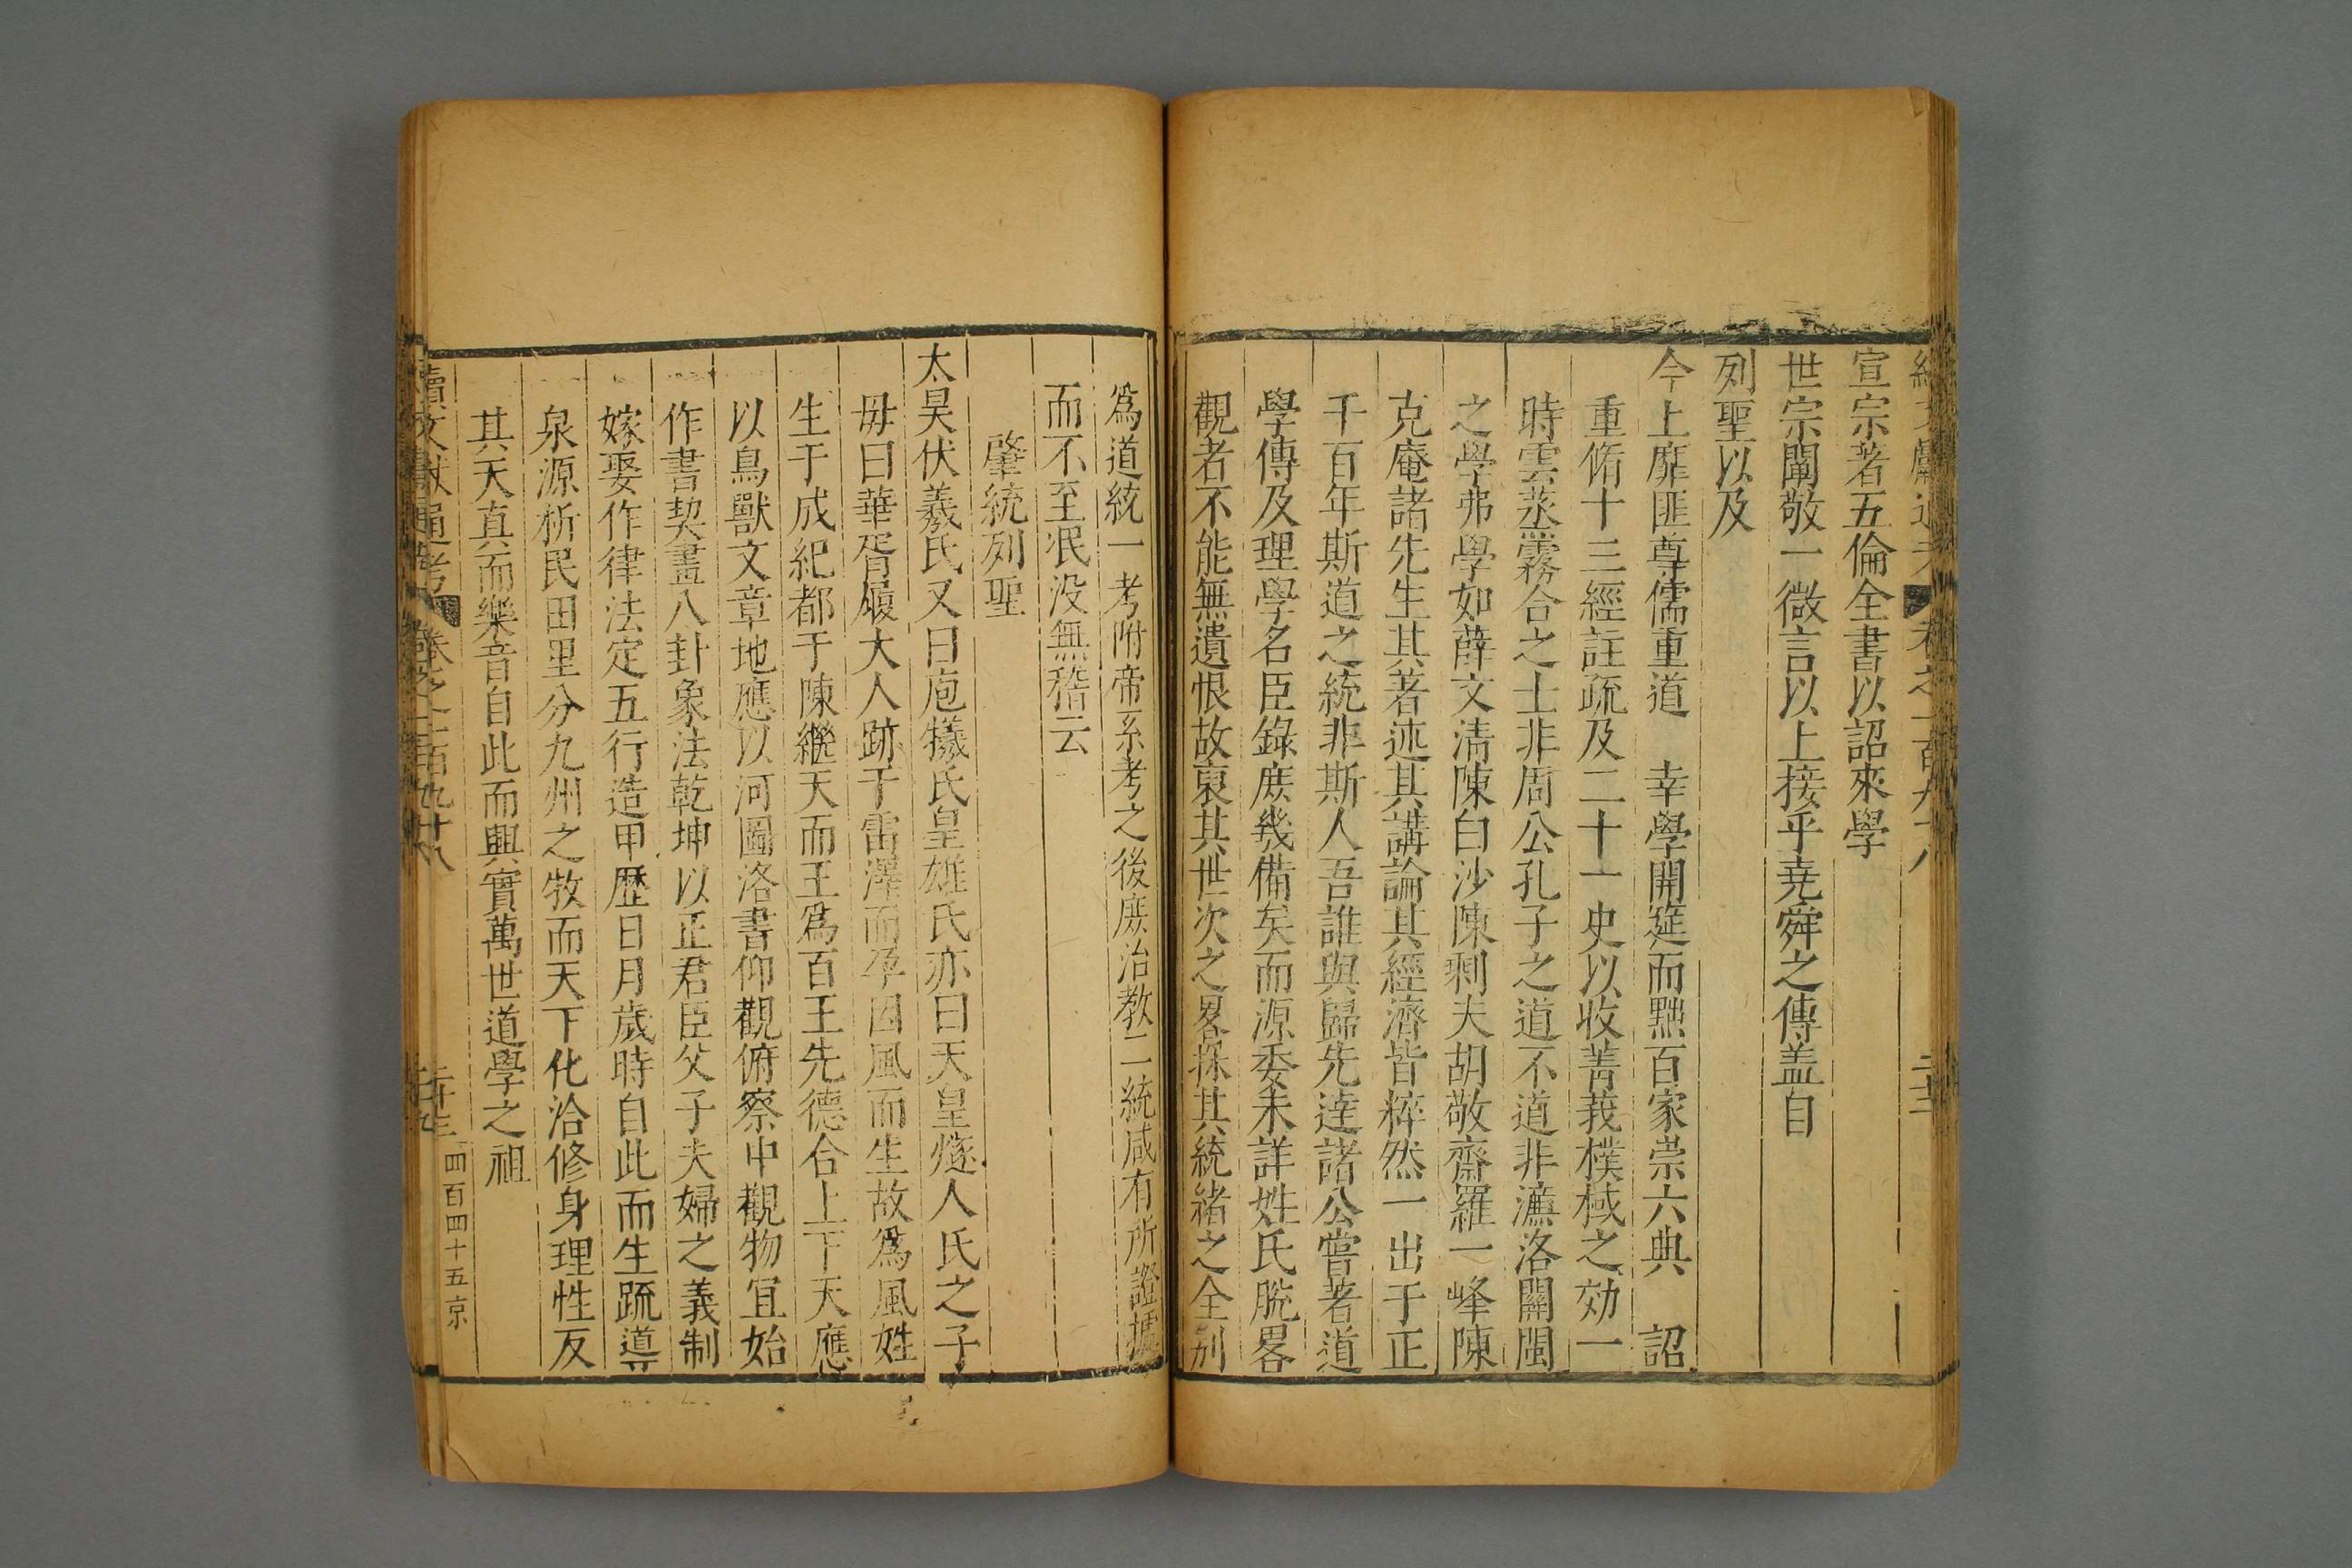 宣宗著五倫全書以詔來學
世宗闡敬一微言以上接乎堯舜之傳盖自
列聖以及
今上靡匪尊儒重道 幸學開筵而黜百家崇六典 詔
重脩十三經註疏及二十一史以收菁莪樸棫之効一
時雲蒸霧合之士非周公孔子之道不道非濂洛關閩
之學弗學如薛文清陳白沙陳剩夫胡敬齋羅一峰陳
克庵諸先生其著述其講論其經濟皆粹然一出于正
千百年斯道之統非斯人吾誰與歸先逹諸公嘗著道
學傳及理學名臣錄庶幾備矣而源委未詳姓氏脱畧
觀者不能無遺恨故裒其世次之畧採其統緒之全別
為道統一考附帝系考之後庶治教二統咸有所證據
而不至泯没無稽云
肇統列聖
太昊伏羲氏又曰庖犧氏皇雄氏亦曰天皇燧人氏之子
毋曰華胥履大人跡于雷澤而孕因風而生故爲風姓
生于成紀都于陳繼天而王爲百王先德合上下天應
以鳥獸文章地應以河圖洛書仰觀俯察中觀物宜始
作書契畫八卦象法乾坤以正君臣父子夫婦之義制
嫁娶作律法定五行造甲歷日月歲時自此而生疏道
泉源析民田里分九州之牧而天下化洽修身理性反
其天真而樂音自此而興實萬世道學之祖
續文獻通考 卷之一百九十八
四百四十五京